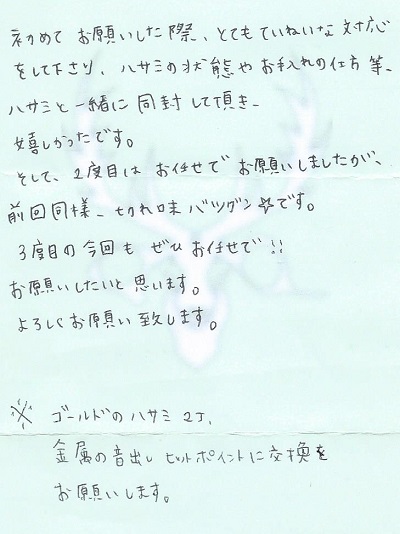 初めて お願いした際、とてもていねいな対応
をして下さり、ハサミの状態やお手入れの仕方等、
ハサミと一緒に同封して頂き、
嬉しかったです。
そして、2度目は お任せで お願いしましたが、
前回同様、切れ味バツグン☆です。
3度目の今回も ぜひ お任せで!!
お願いしたいと思います。
よろしくお願い致します。
※ ゴールドのハサミ 2丁、
金属の音出し ヒットポイントに交換を
お願いします。